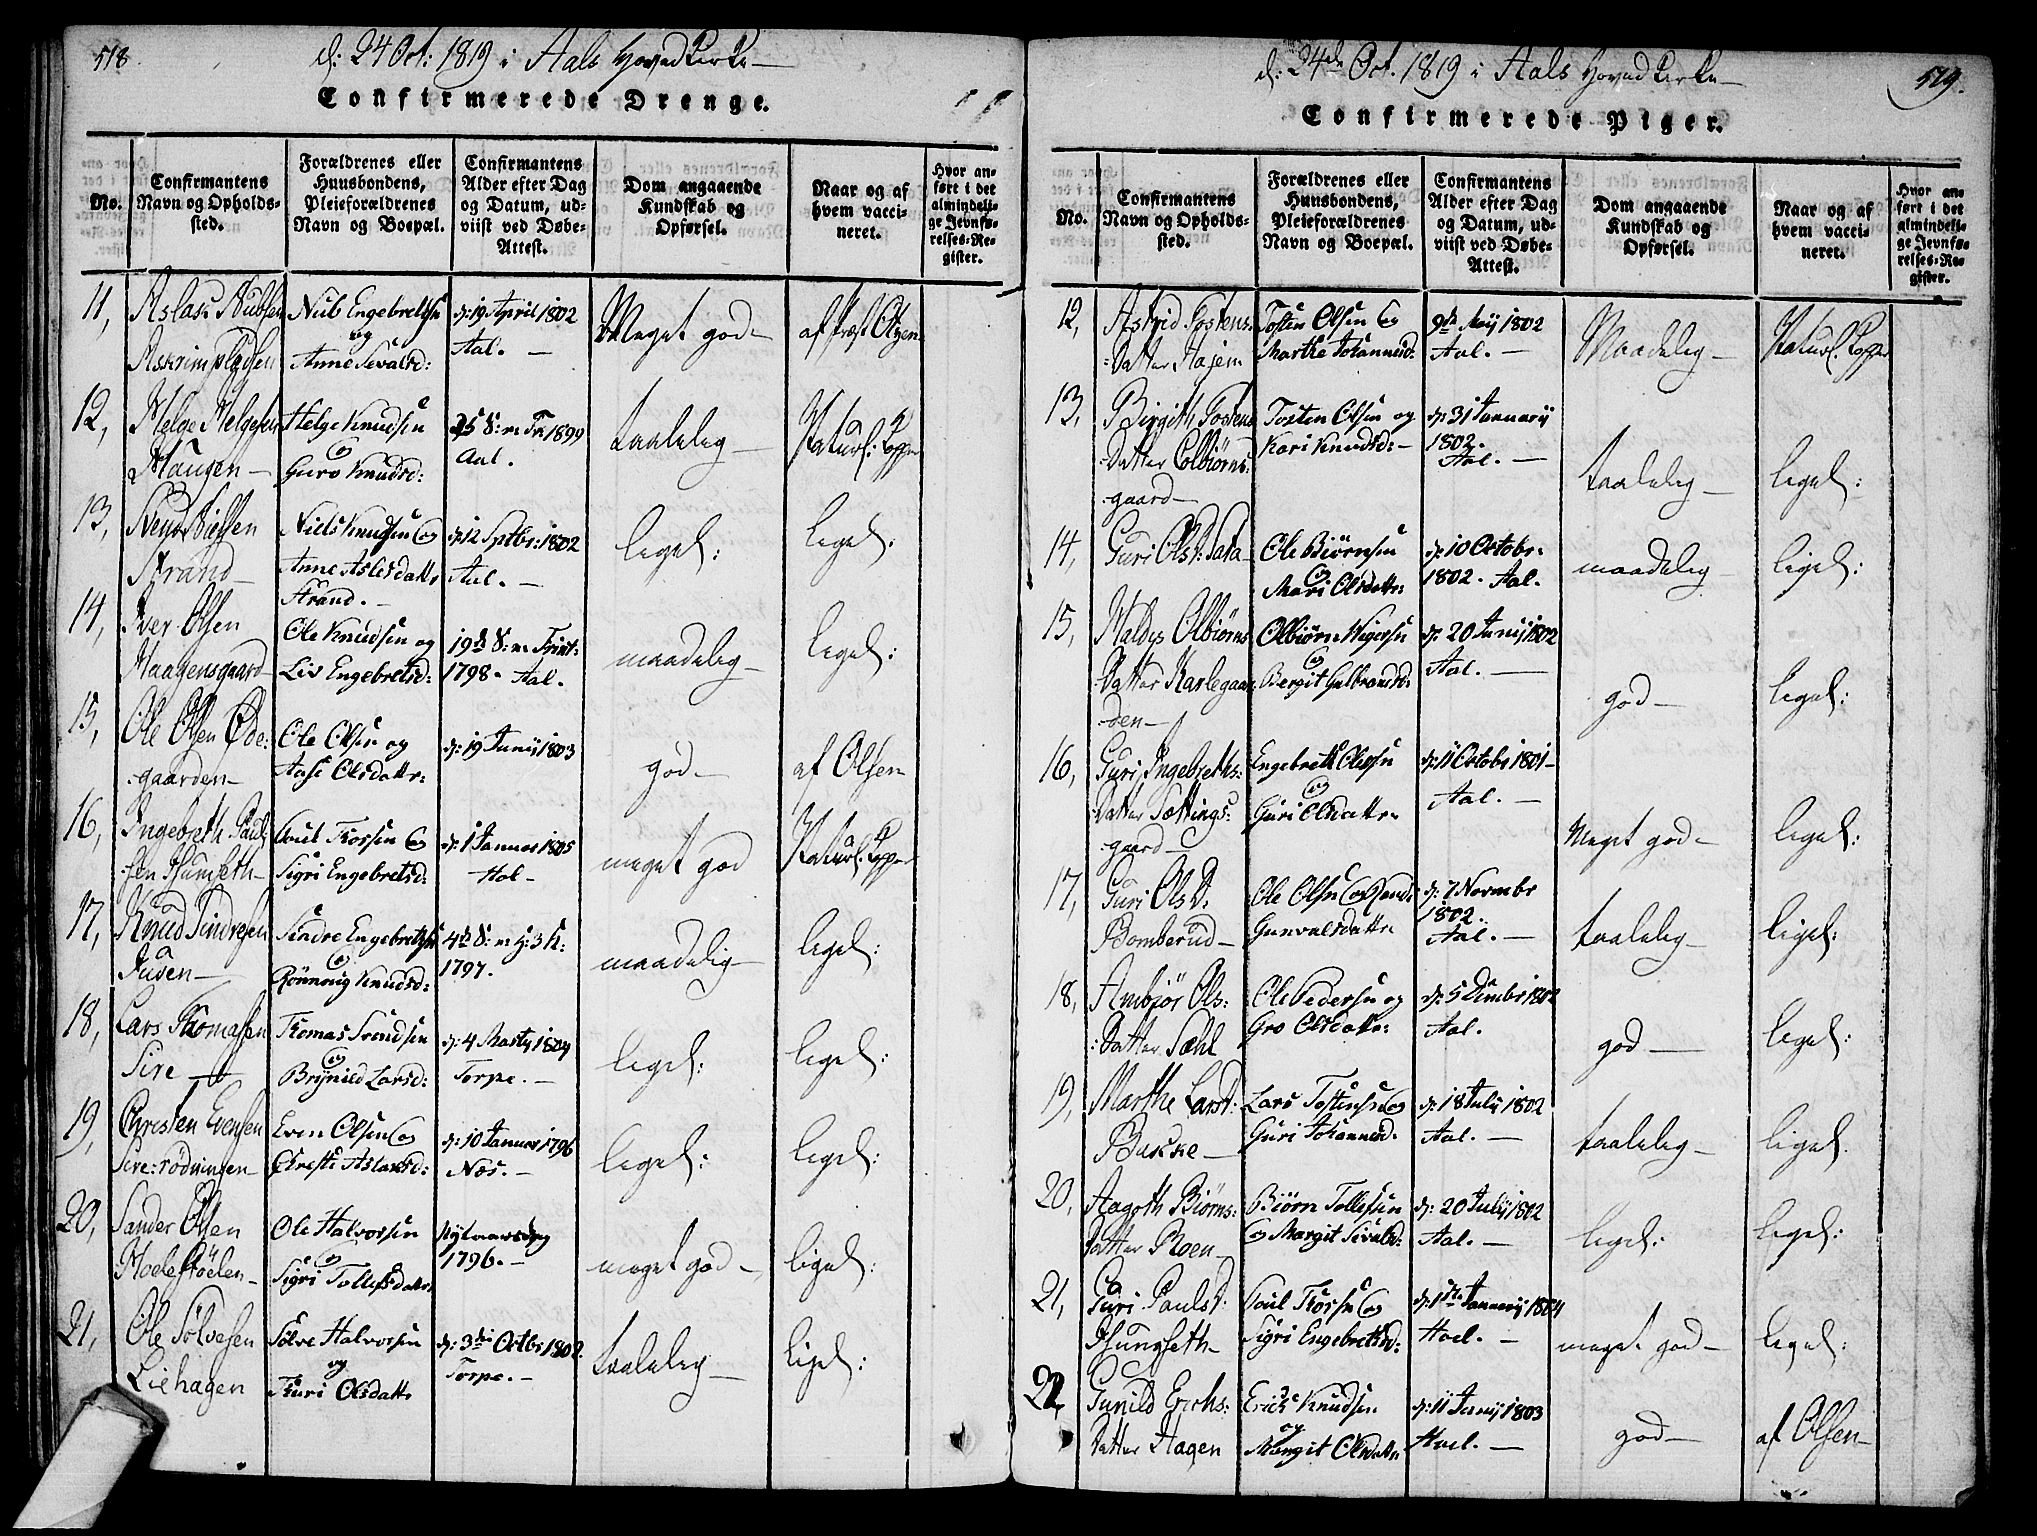 518.
d: 24 Oct: 1819 i Aals Hovedkirke —
Confirmerede Drenge.
No.
Confirmantens
Navn og Opholds-
sted.
Forældrenes eller
Huusbondens,
Pleieforældrenes
Navn og Boepæl.
Confirmantens
Alder efter Dag
og Datum, ud-
viist ved Døbe-
Attest.
Dom angaaende
Kundskab og
Opførsel.
Naar og af
hvem vacci-
neret.
Hvor an-
ført i det
almindeli-
ge Jevnfø-
relses-Re-
gister.
11,
Nub Engebretsen
og
Anne Sevaltsd:
d: 19 April 1802
Aal. —
Meget god —
af Præst Olsen
12,
Helge Helgesen
Haugen —
Helge Knudsen
og
Guro Knudsd:
Aal.
taaleleg —
Naturl: Kopper
13,
Knud Nielsen
Strand —
Niels Knudsen og
Anne Aslesdattr
Strand. —
d: 12 Sptbr: 1802
Aal. —
legel:
legel:
14,
Iver Olsen
Haagensgaard
Ole Knudsen og
Liv Engebretsd:
19de S: n: Trint:
1798. Aal.
maadeleg —
legel:
15,
Ole Olsen Øde:
gaarden —
Ole Olsen og
Aase Olsdattr:
d: 19 Junij 1803
god —
af Olsen
16,
Ingebreth Paul:
sen
Poul Thorsen og
Sigri Engebretsd:
d: 1 Januar 1805
Hol —
meget god
Naturl: Kopper
17,
Knud Sindresen
Sindre Engebretsen
og
Rønnoug Knudsd:
4de S: n: H: 3 K:
1797.
maadelig —
legel:
18,
Lars Thomasen
Sire —
Thomas Svendsen
og
Brynild Larsd:
d: 4 Martij 1804
Torpe. —
legel:
legel:
19,
Christen Evensen
Sire:rødningen —
Even Olsen og
Christi Aslaksd:
d: 10 Januar 1796
Næs. —
legel:
legel:
20,
Sander Olsen
Ole Halvorsen
og
Sigri Tollefsdattr
Nytaarsdag
1796. —
meget god —
ligel:
21,
Ole Sølvesen
Liehagen
Sølve Halvorsen
og
Thuri Olsdattr
d: 3die Octbr 1802.
Torpe. —
taaleleg —
ligel:
519.
d: 24de Oct. 1819 i Aals Hovedkirke —
Confirmerede Piger.
No.
Confirmantens
Navn og Opholds-
sted.
Forældrenes eller
Huusbondens,
Pleieforældrenes
Navn og Boepæl.
Confirmantens
Alder efter Dag
og Datum, ud-
viist ved Døbe-
Attest.
Dom angaaende
Kundskab og
Opførsel.
Naar og af
hvem vacci-
neret.
Hvor an-
ført i det
almindeli-
ge Jevnfø-
relses-Re-
gister.
12,
Astrid Tostens:
:Datter Hajem
Tosten Olsen og
Marthe Johannisd:
9de Maij 1802
Aal. —
Maadeleg —
Naturl. Kopper
13,
Birgith Tostens
:Datter Colbiørns:
:gaard —
Tosten Olsen og
Kari Knudsd: —
d: 31 Januarij
1802.
Aal. —
taaleleg —
legel:
14,
Guri Olsd: Sata —
Ole Biørnsen
og
Mari Olsdattr:
d: 10 Octobr:
1802. Aal.
maadeleg —
ligel:
15,
Haldis Olbiørns
Datter Karlegaar
den —
Olbiørn Vigersen
og
Bergit Gulbrandsd:
d: 20 Junij 1802
Aal. —
god —
legel:
16,
Guri Ingebreths:
:Datter Sættings:
:gaard —
Engebreth Olessen
og
Guri Olsdattr
d: 11 Octobr 1801 —
Aal. —
Meget god —
ligel:
17,
Guri Olsd:
Bomberud —
Ole Olsen og Rand:
Gunvalsdattr
d: 7 Novembr
1802.
Aal. —
taaleleg —
ligel:
18,
Ambiør Ols:
:Datter Sæhl
Ole Pedersen og
Gro Olsdattr:
d: 5 Decmbr 1802
Aal.
god —
legel:
19,
Marthe Larsd:
Bakke —
Lars Tostensen og
Guri Johannesd:
d: 18 Julij 1802
Aal. —
taaleleg —
ligel.
20,
Aagoth Biørns:
Datter Roen —
Biørn Tollefsen
og Margit Sevalsd:
d: 20 Julij 1802
Aal. —
legel:
legel:
21,
Guri Paulsd:
Poul Thorsen og
Sigri Engebrethsd:
d: 1ste Januarij 1804
Hoel. —
meget god —
legel:
22,
Gunild Erichs:
Datter Hagen
Erich Knudsen
og
Margit Olsdattr:
d: 11 Junij 1803
Hoel. —
god —
af Olsen —